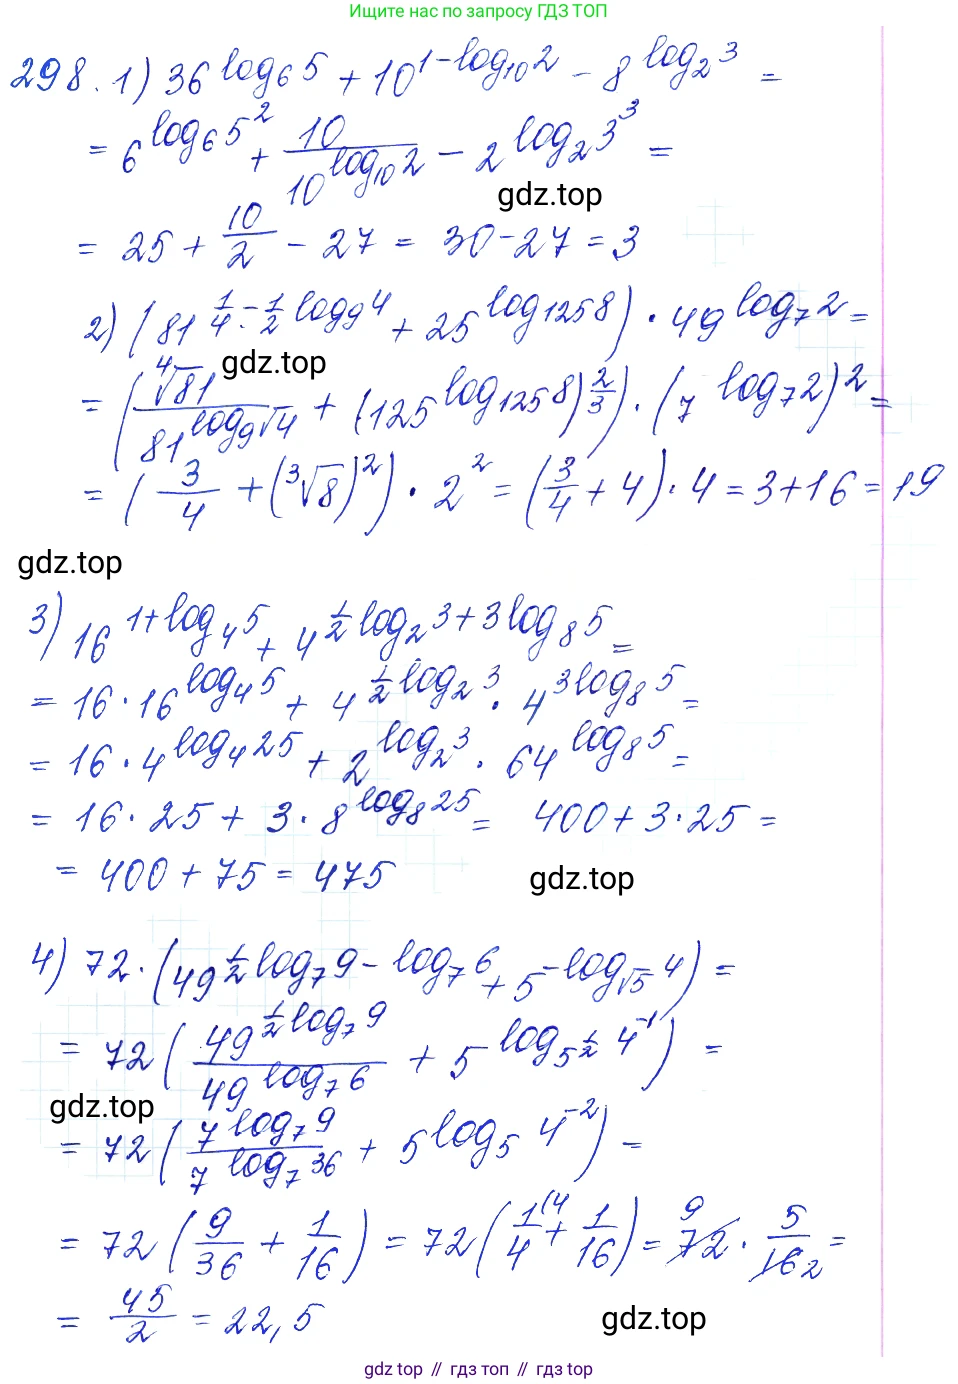 Ищите нас по запросу ГДЗ ТОП
298. 1) 36^(log_6 5) + 10^(1-log_10 2) - 8^(log_2 3) =
= 6^(log_6 5^2) + 10/10^(log_10 2) - 2^(log_2 3^3) =
gdz.top
= 25 + 10/2 - 27 = 30-27 = 3
2) (81^(1/4 - 1/2 log_9 4) + 25^(log_125 8)) · 49^(log_7 2) =
gdz.top
= (⁴√81/81^(log_9 √4) + (125^(log_125 8))^(2/3)) · (7^(log_7 2))^2 =
= (3/4 + (³√8)^2) · 2^2 = (3/4 + 4) · 4 = 3+16 = 19
gdz.top
3) 16^(1+log_4 5) + 4^(1/2 log_2 3 + 3 log_8 5) =
= 16 · 16^(log_4 5) + 4^(1/2 log_2 3) · 4^(3 log_8 5) =
= 16 · 4^(log_4 25) + 2^(log_2 3) · 64^(log_8 5) =
= 16 · 25 + 3 · 8^(log_8 25) = 400 + 3·25 =
= 400 + 75 = 475
gdz.top
4) 72 · (49^(1/2 log_7 9 - log_7 6) + 5^(-log_√5 4)) =
= 72 (49^(1/2 log_7 9)/49^(log_7 6) + 5^(log_(5^(1/2)) 4^-1)) =
gdz.top
= 72 (7^(log_7 9)/7^(log_7 36) + 5^(log_5 4^-2)) =
= 72 (9/36 + 1/16) = 72 (1/4^(4 + 1/16) = 72^9 · 5/16_2 =
= 45/2 = 22,5
gdz.top
gdz top // гдз топ // gdz top